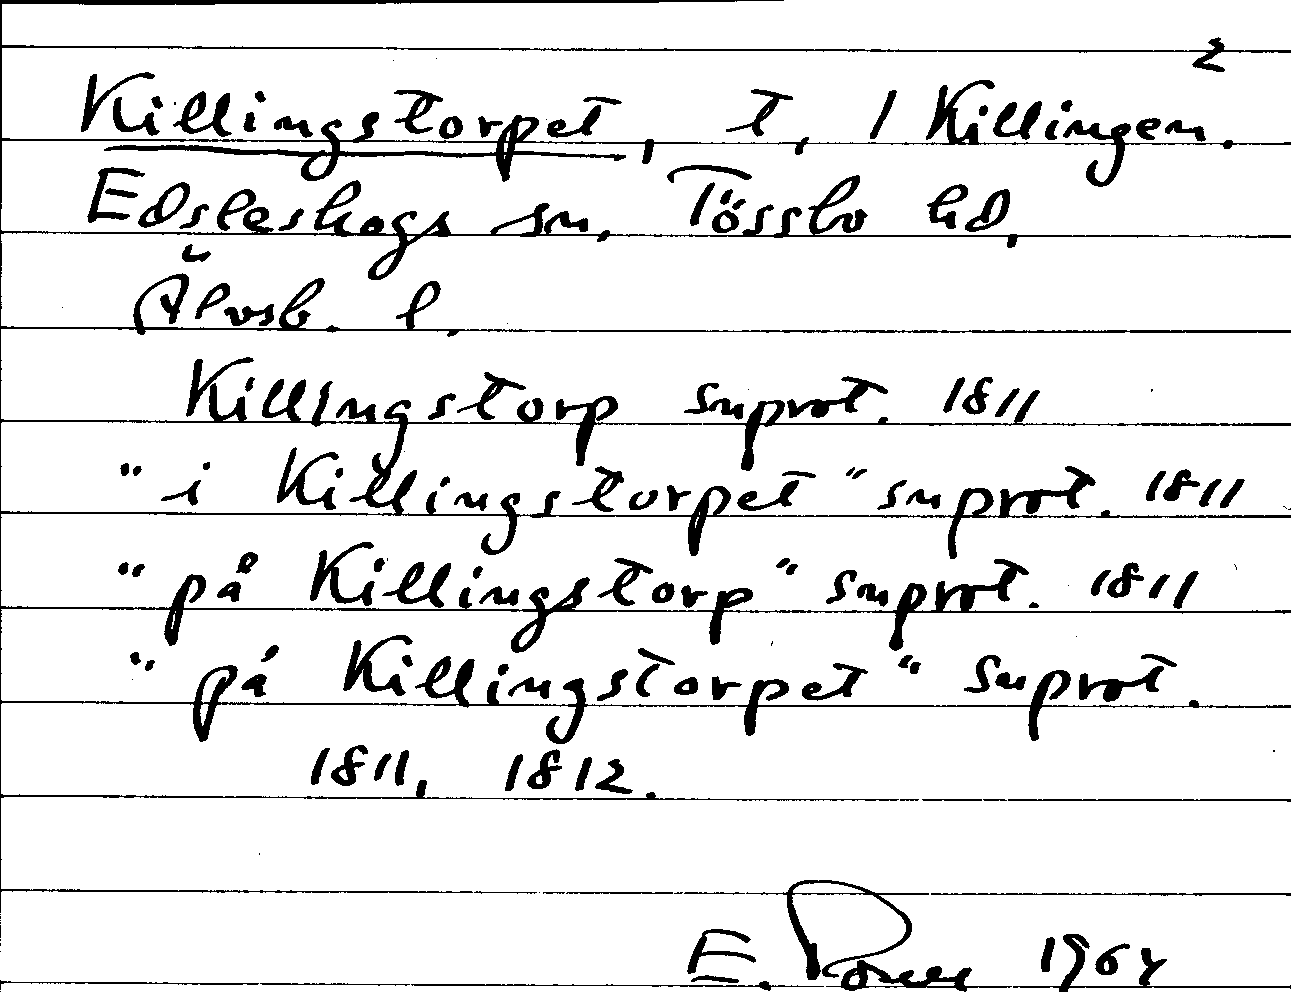 2
Killingstorpet, t, 1 Killingen.
Edsleskogs sn, Tössbo hd,
Älvsb. l.
Killingstorp snprot. 1811
"i Killingstorpet" snprot. 1811
"på Killingstorp" snprot. 1811
"på Killingstorpet" snprot.
1811, 1812.
E. 1964